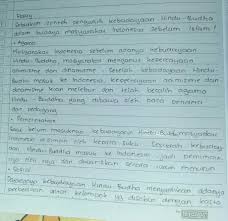 Essay
Sebutkan contoh pengaruh kebudayaan Hindu-Buddha
dalam budaya masyarakat Indonesia sebelum Islam!
• Agama
Masyarakat Indonesia sebelum adanya kebudayaan
Hindu-Buddha, masyarakat menganut kepercayaan
animisme dan dinamisme. Setelah kebudayaan Hindu-
Buddha masuk ke Indonesia kepercayaan animisme dan
dinamisme kian melebur dan telah beralih agama
Hindu-Buddha yang dibawa oleh para pendeta
dan pedagang
• Pemerintahan
Saat belum masuknya kebudayaan Hindu-Buddha masyarakat
dipimpin oleh kepala suku. Sesudah kebudayaan
Hindu-Buddha masuk ke Indonesia jadi pemimpin
raja dan diwariskan secara turun menurun
• Sosial
kebudayaan Hindu-Buddha menyebabkan adanya
perbedaan antar kelompok yg disebut dengan kasta